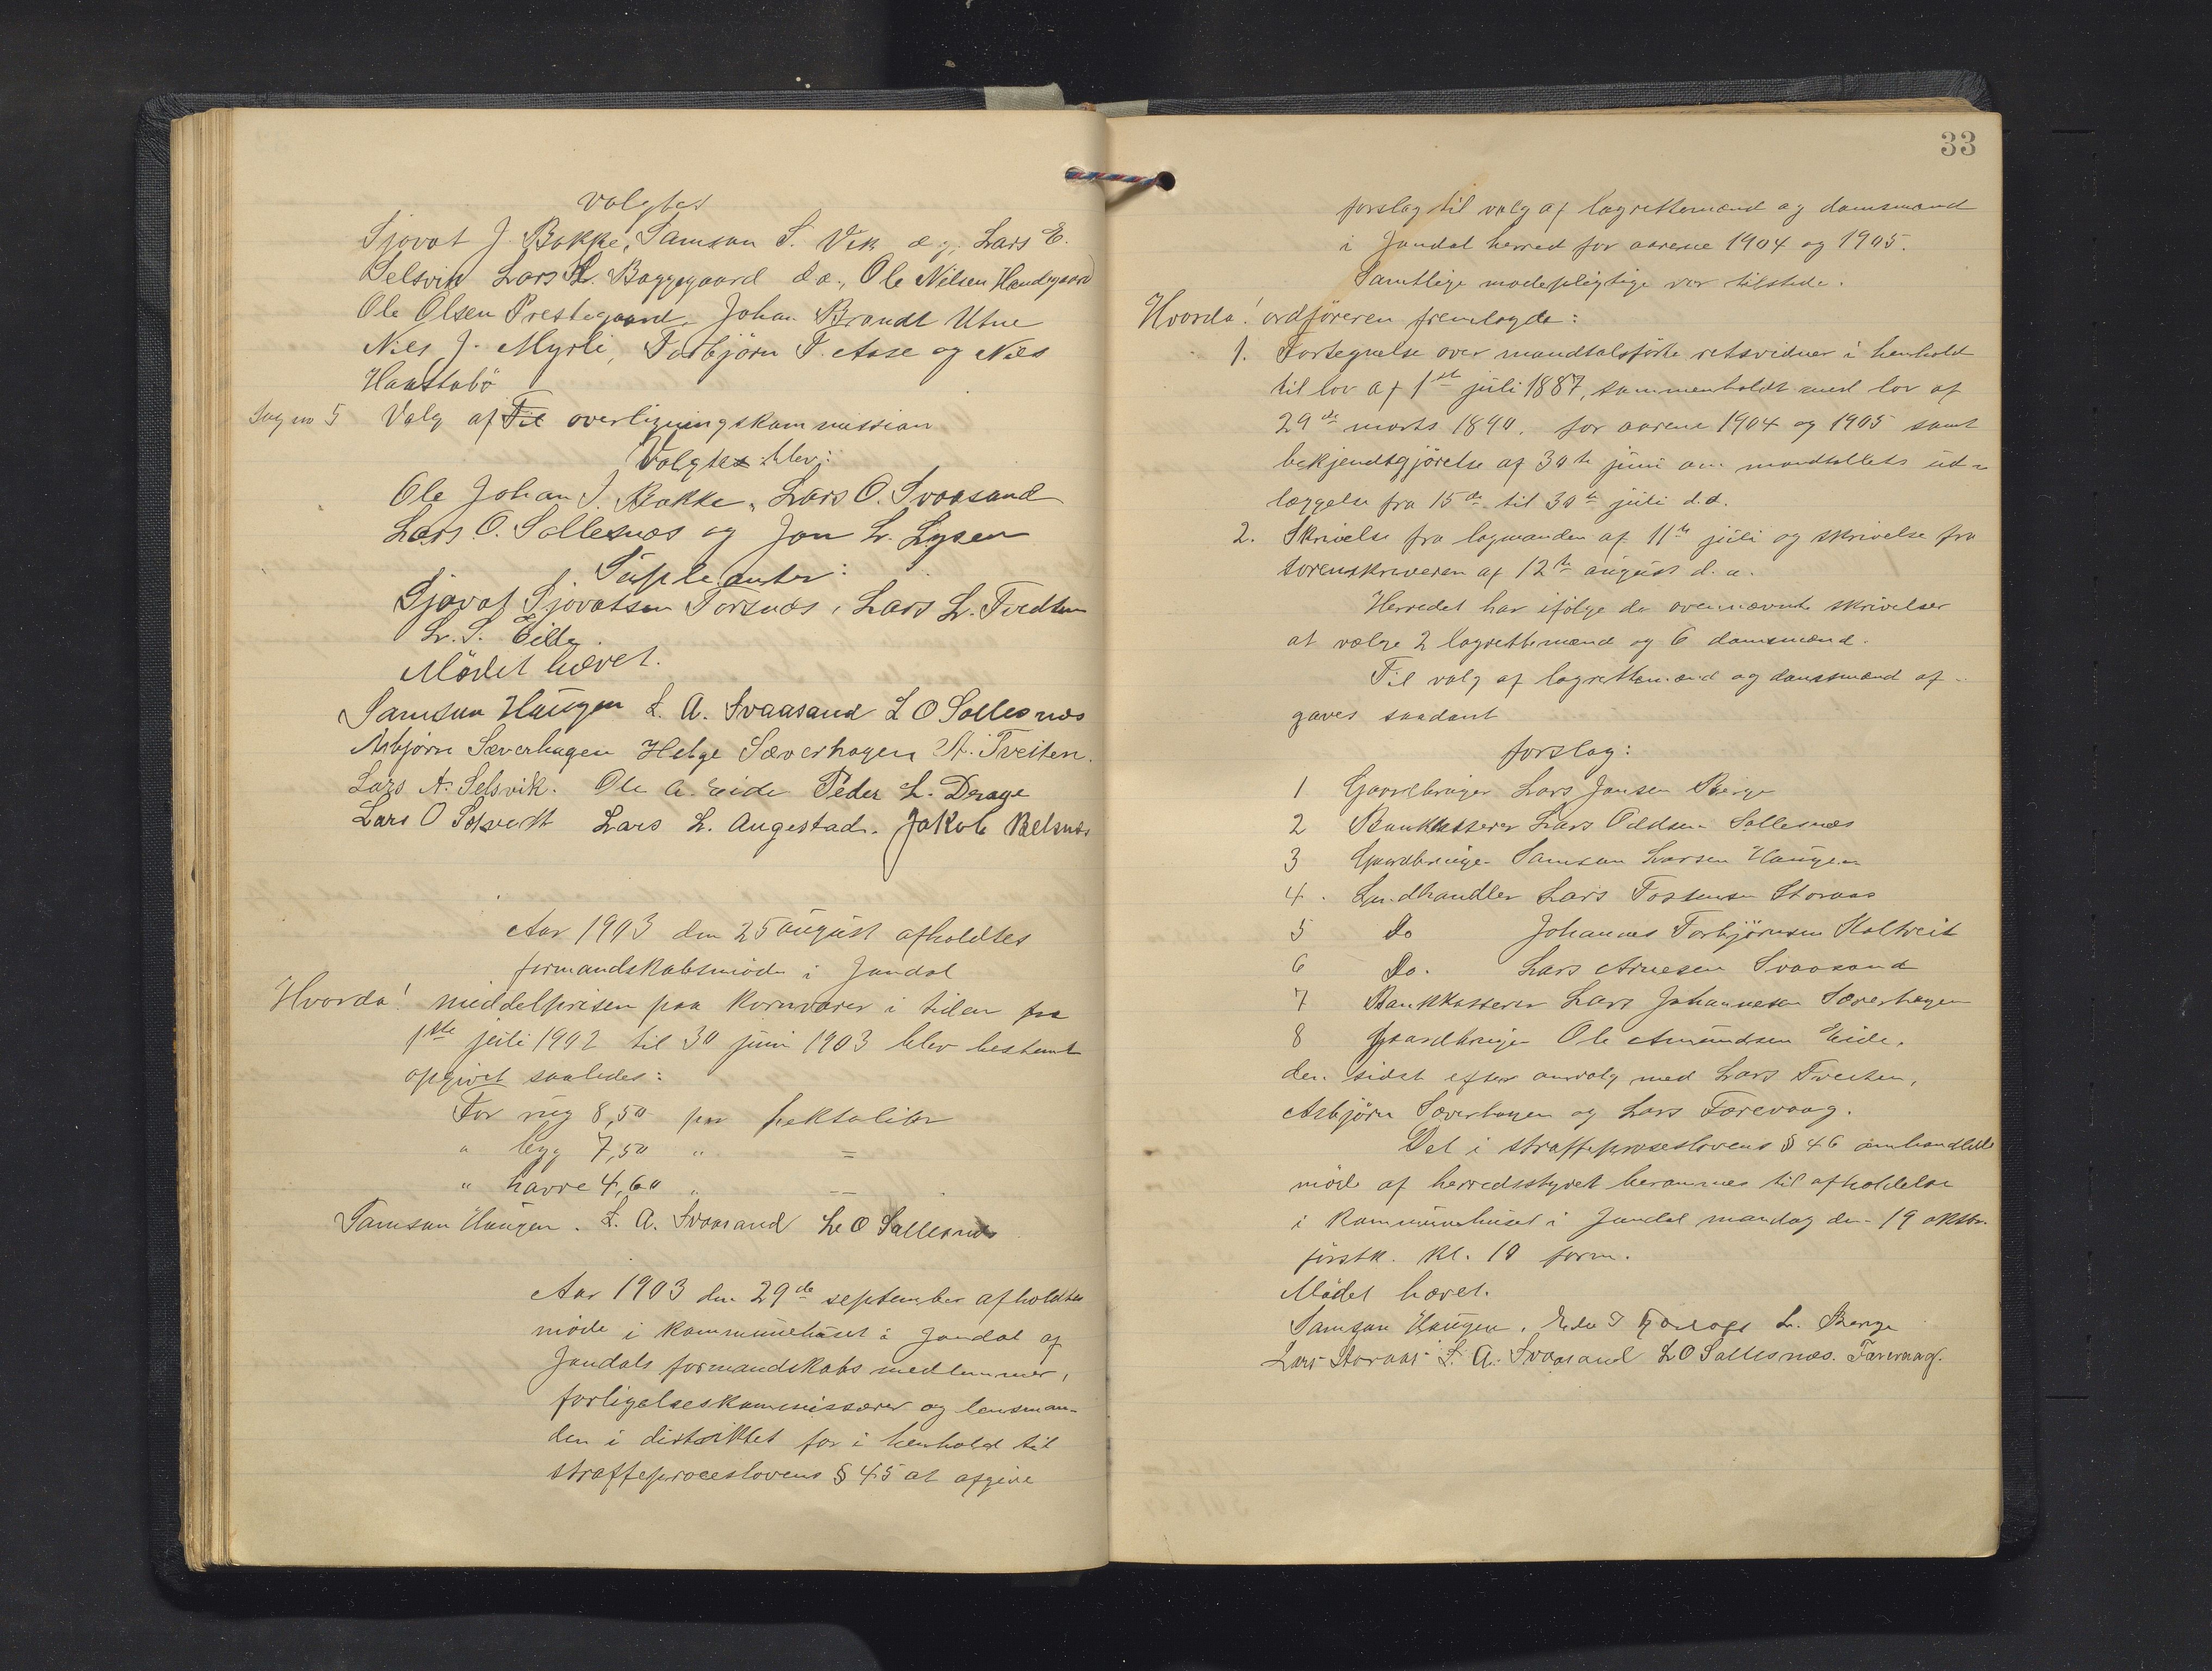 valgtes
Sjovat J. Bakke, Samson S. Vik æ., Lars E.
Selsvik Lars L. Baggegaard d. æ., Ole Nilsen Handegaard
Ole Olsen Prestegaard, Johan Brandt Utne
Nils J. Myrli, Torbjörn T. Aase og Nils
Haastabö
Sag no 5 Valg af Til overligningskommission
Valgtes blev:
Ole Johan J. Bakke, Lars O. Svaasand
Lars O. Sollesnæs og Jon L. Lysen
Supleanter:
Sjovat Sjovatsen Torsnæs, Lars L. Tvedten
L. S. Eide.
Mödet hævet.
Samson Haugen L. A. Svaasand L O Sollesnæs
Asbjörn Sæverhagen Helge Sæverhagen A. Tveiten.
Lars A. Selsvik. Ole A. Eide Peder L. Drage
Lars O Solsvedt Lars L. Augestad. Jakob Belsnæs
Aar 1903 den 25 august afholdtes
formandskabsmöde i Jondal
Hvorda! middelprisen paa kornvarer i tiden fra
1ste juli 1902 til 30 juni 1903 blev bestemt
opgivet saaledes:
For rug 8,50 per hektoliter
" byg 7,50 " =
" havre 4,60 " --
Samson Haugen. L. A. Svaasand L O Sollesnæs
Aar 1903 den 29de september afholdtes
möde i kommunehuset i Jondal af
Jondals formandskabs medlemmer,
forligelseskommissærer og lensman-
den i distriktet for i henhold til
straffeproceslovens § 45 at afgive
33
forslag til valg af lagrettemænd og domsmænd
i Jondal herred for aarene 1904 og 1905.
Samtlige mödepligtige var tilstede.
Hvorda! ordföreren fremlagde:
1. Fortegnelse over mandtalsförte retsvidner i henhold
til lov af 1ste juli 1887, sammenholdt med lov af
29de marts 1890. for aarene 1904 og 1905 samt
bekjendtgjörelse af 30te juni om mandtallets ud-
læggelse fra 15de til 30te juli d.å.
2. Skrivelse fra lagmanden af 11te juli og skrivelse fra
sorenskriveren af 12te august d. a.
Herredet har ifölge de ovennævnte skrivelser
at vælge 2 lagrettemænd og 6 domsmænd.
Til valg af lagrettemænd og domsmænd af-
gaves saadant
forslag:
1 Gaardbruger Lars Jonsen Berge
2 Bankkasserer Lars Oddsen Sollesnæs
3 Gaardbruger Samson Larsen Haugen
4. Landhandler Lars Tostensen Storaas
5 Do Johannes Torbjörnsen Koltveit
6 Do. Lars Arnesen Svaasand
7 Bankkasserer Lars Johannesen Sæverhagen
8 Gaardbruger Ole Amundsen Eide.
den sidste efter omvalg med Lars Tveiten,
Asbjörn Sæverhagen og Lars Torevaag.
Det i straffeproseslovens § 46 omhandlede
möde af herredsstyret berammes til afholdelse
i kommunehuset i Jondal mandag den 19 oktbr.
förstk. kl. 10 form.
Mödet hævet.
Samson Haugen. L. Berge
Lars Storaas L. A. Svaasand L O Sollesnæs. Torevaag.